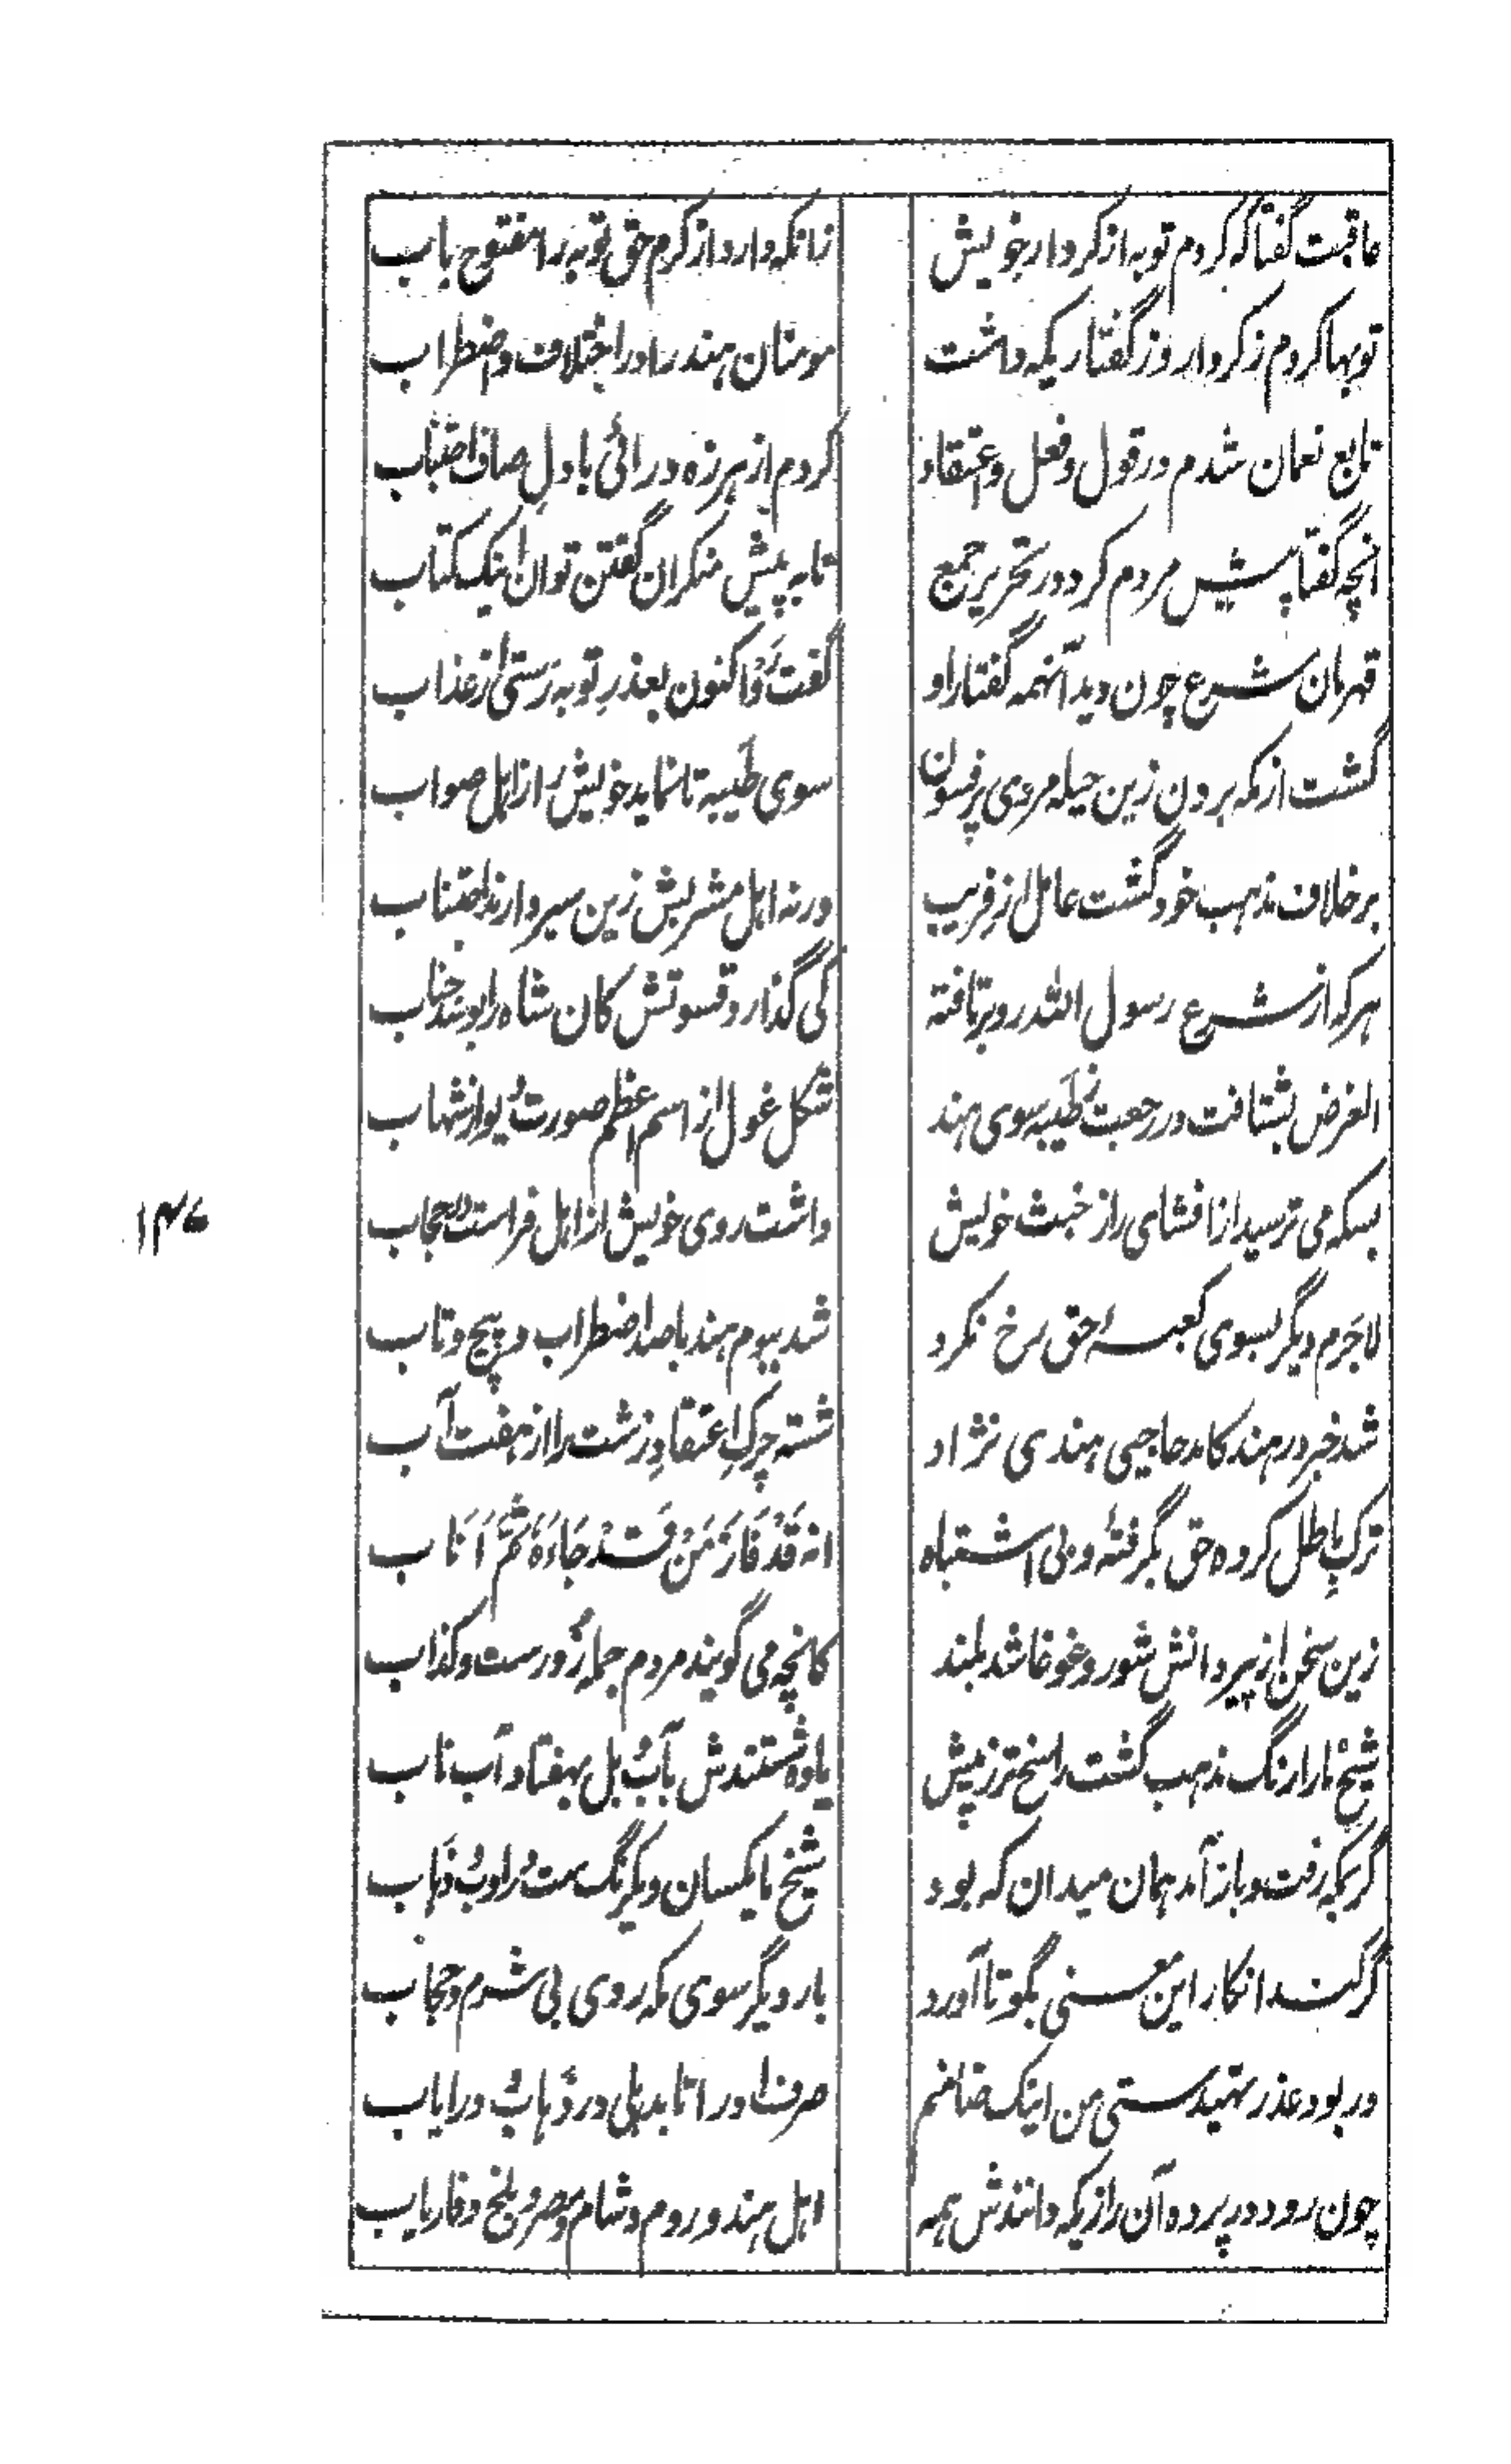 عاقبت گفتا که کردم توبه از کردار خویش
زانکه دارد از کرم حق توبه را مفتوح باب
توبها کردم ز کردار و ز گفتاریکه داشت
مومنان هند را در اختلاف و اضطراب
تابع نعمان شدم در قول و فعل و اعتقاد
کردم از هرزه درائی با دلِ صاف اجتناب
انچه گفتا پیش مردم کرد در تحریر جمع
تا به پیش منکران گفتن توان اینک کتاب
قهرمان شرع چون دید آنهمه گفتار او
گفت رَوْ اکنون بعذرِ توبه رَستی از عذاب
گشت از مکه برون زین حیله مردی پر فسون
سوی طَیبه تا نماید خویش را ز اهل صواب
بر خلاف مذهب خود گشت عامل از فریب
ورنه اهل مشربش زین سیر دارند اجتناب
هر که از شرع رسول الله رو بر تافته
کی گذارد قسوتش کان شاه را بوسد جناب
الغرض بشتافت در رجعت ز طَیبه سوی هند
شکل غول از اسم اعظم صورت دیو از شهاب
بسکه می ترسید از افشای راز خبث خویش
داشت روی خویش از اهل فراست در حجاب
لاجَرم دیگر بسوی کعبهٔ حق رخ نکرد
شد ببوم هند با صد اضطراب و پیچ و تاب
شد خبر در هند کامد حاجیی هندی نژاد
شسته چرکِ اعتقادِ زشت را از هفت آب
ترکِ باطل کرده حق بگرفته و بی اشتباه
انه قَدْ فَازَ مَنْ قَدْ جَاءَهٗ ثُمَّ اَنَاب
زین سخن از پیروانش شور و غوغا شد بلند
کانچه می گویند مردم جمله زُورست و کذاب
شیخ ما را رنگ مذهب گشت راسخ تر ز پیش
یاوه شستندش بآب بل بهفتاد آب ناب
گر بمکه رفت و باز آمد همان میدان که بود
شیخ ما یکسان و یکرنگ ست در اوب و ذهاب
گر کند انکار این معنی بگو تا آورد
بار دیگر سوی مکه روی بی شرم و حجاب
ور بود عذر تهیدستی من اینک ضامنم
صرف او را تا بدهلی در ذهاب و در ایاب
چون رود در پرده آن رازیکه دانندش همه
اهل هند و روم و شام و مصر و بلخ و فاریاب
۱۴۷